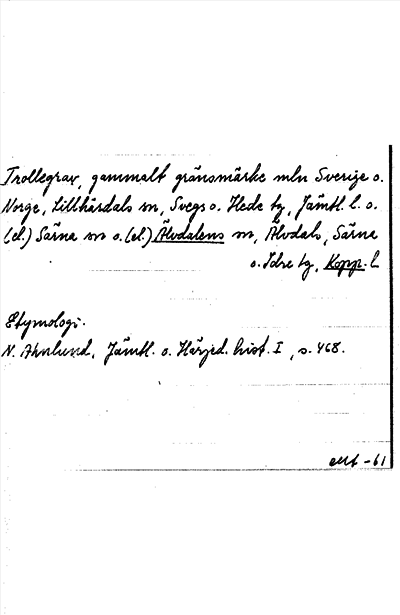 Trollegrav, gammalt gränsmärke mln Sverige o.
Norge, Lillhärdals sn, Svegs o. Hede tg, Jämtl. l. o.
(el.) Särna sn o. (el.) Älvdalens sn, Älvdals, Särna
o. Idre tg, Kopp. l.
Etymologi.
N. Ahnlund, Jämtl. o. Härjed. hist. I, s. 468.
-61